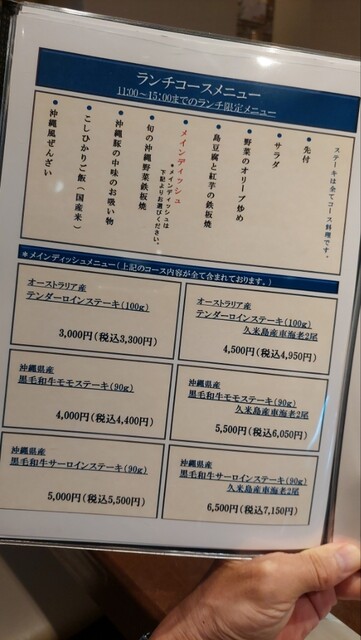 ランチコースメニュー
11:00～15:00までのランチ限定メニュー
ステーキは全てコース料理です。
●先付
●サラダ
●野菜のオリーブ炒め
●島豆腐と紅芋の鉄板焼
●メインディッシュ
＊メインディッシュは
下記よりお選びください。
●旬の沖縄野菜鉄板焼
●沖縄豚の中味のお吸い物
●こしひかりご飯(国産米)
●沖縄風ぜんざい
＊メインディッシュメニュー(上記のコース内容が全て含まれております。)
オーストラリア産
テンダーロインステーキ(100g)
3,000円(税込3,300円)
オーストラリア産
テンダーロインステーキ(100g)
久米島産車海老2尾
4,500円(税込4,950円)
沖縄県産
黒毛和牛モモステーキ(90g)
4,000円(税込4,400円)
沖縄県産
黒毛和牛モモステーキ(90g)
久米島産車海老2尾
5,500円(税込6,050円)
沖縄県産
黒毛和牛サーロインステーキ(90g)
5,000円(税込5,500円)
沖縄県産
黒毛和牛サーロインステーキ(90g)
久米島産車海老2尾
6,500円(税込7,150円)